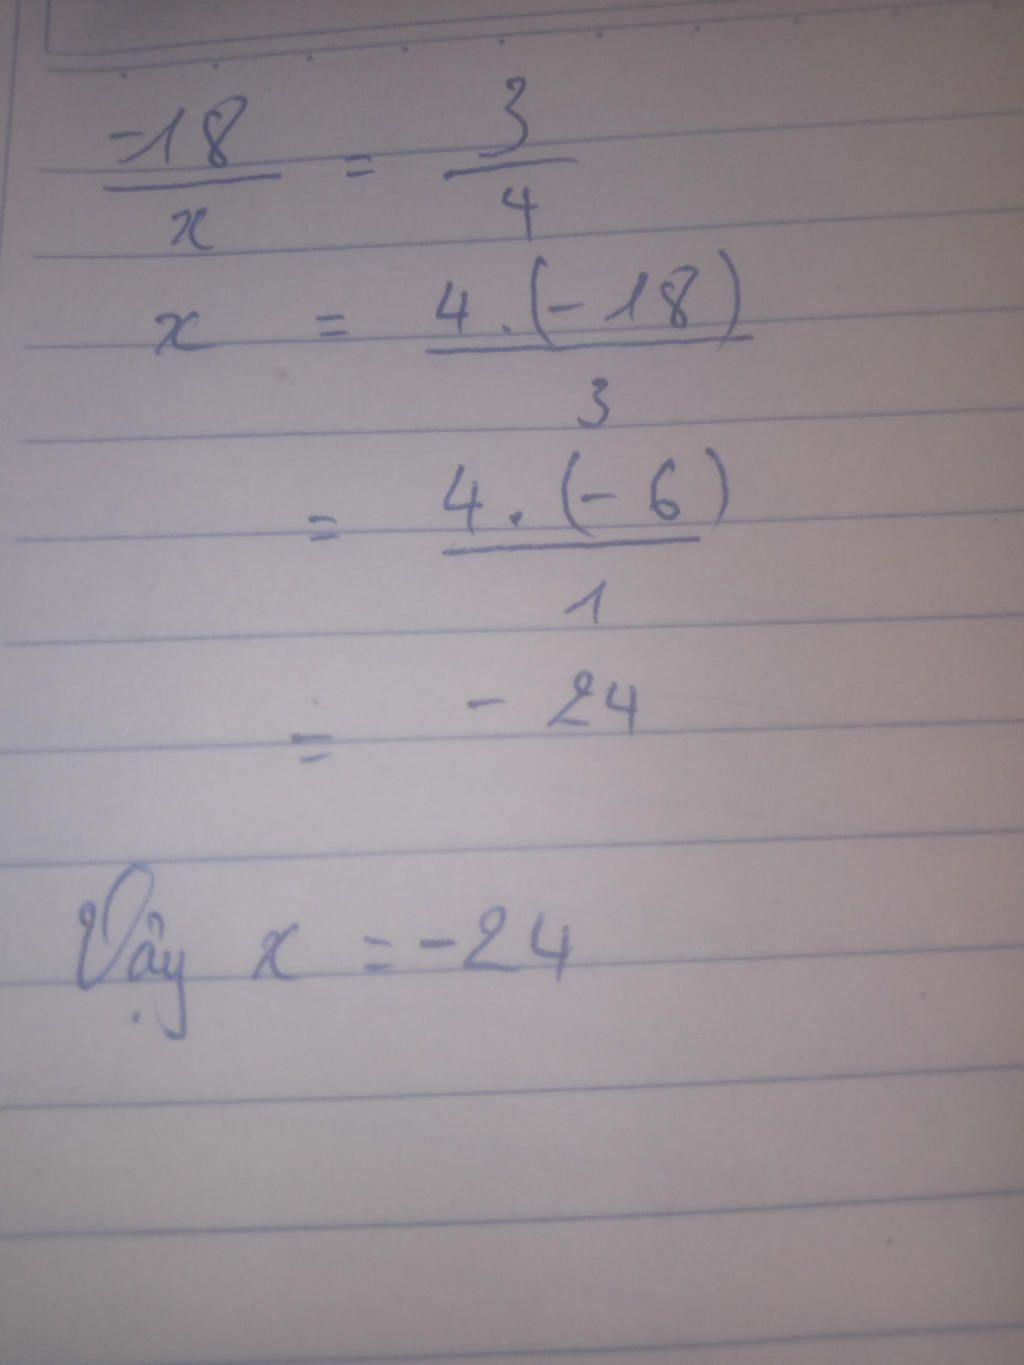 -18/x = 3/4
x = 4.(-18)/3
= 4.(-6)/1
= -24
Vậy x = -24